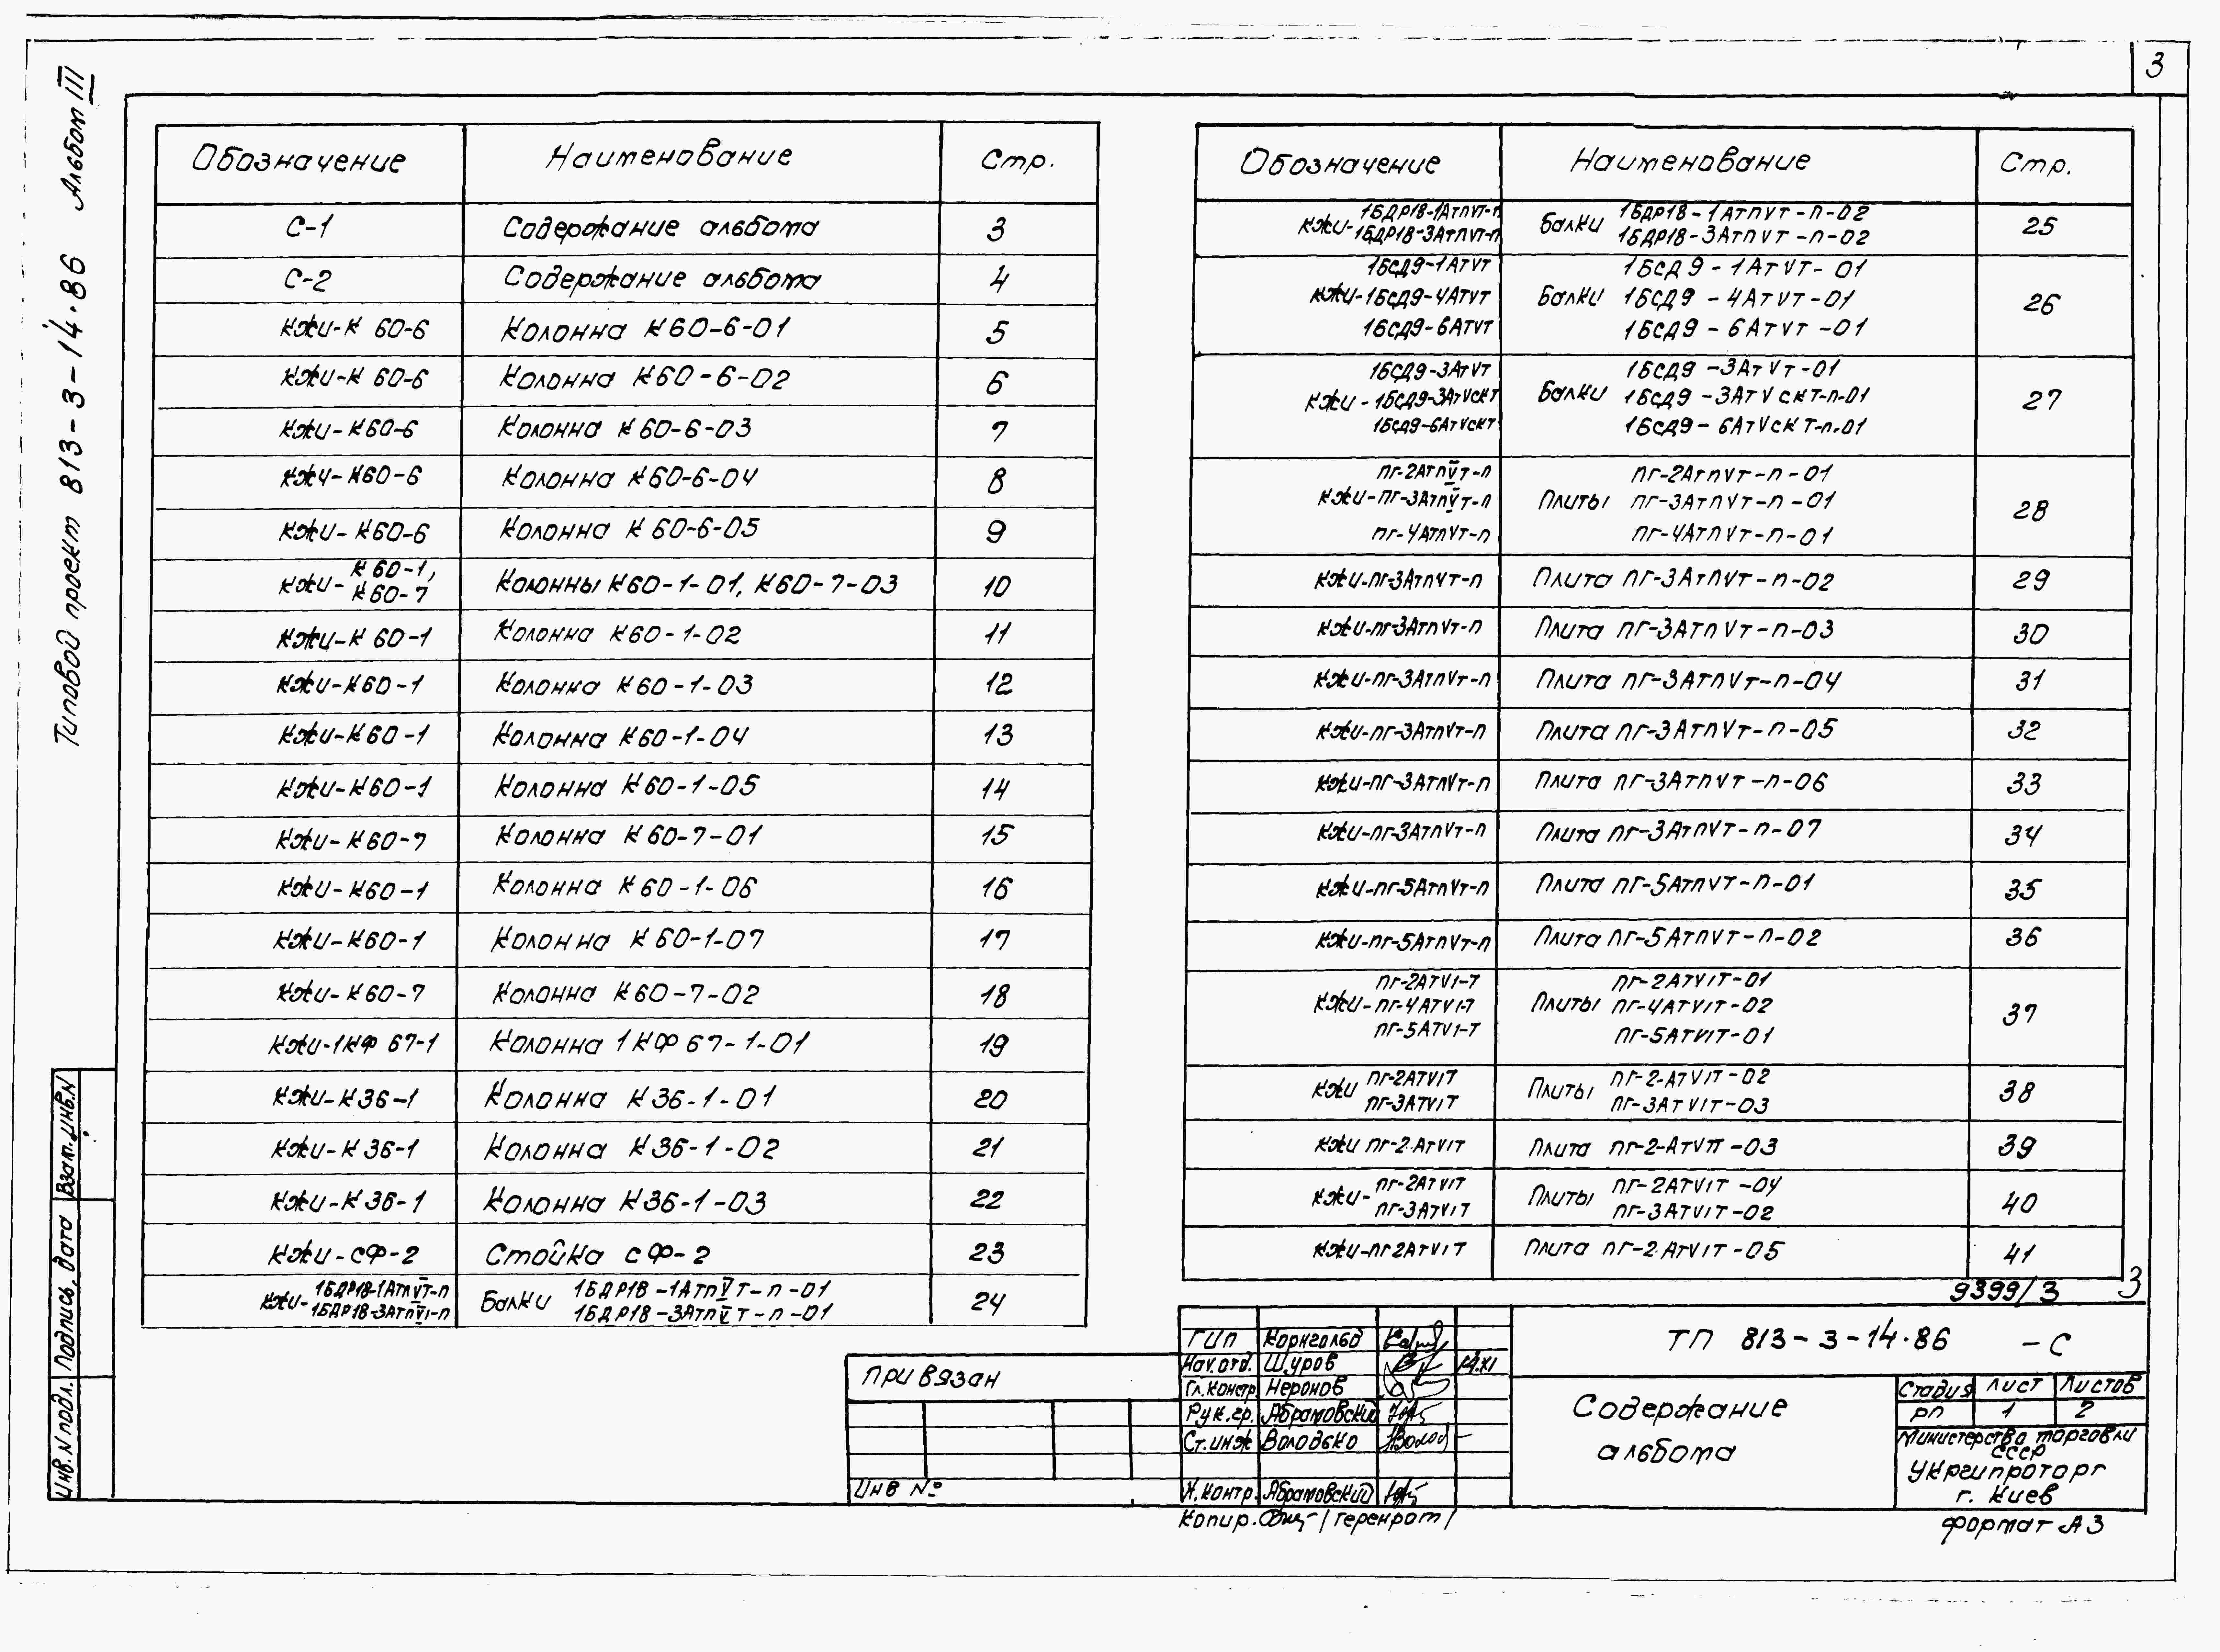 3
Типовой проект 813-3-14.86 Альбом III
Обозначение Наименование Стр.
С-1 Содержание альбома 3
С-2 Содержание альбома 4
КЖИ-К 60-6 Колонна К60-6-01 5
КЖИ-К 60-6 Колонна К60-6-02 6
КЖИ-К60-6 Колонна К60-6-03 7
КЖИ-К60-6 Колонна К60-6-04 8
КЖИ-К60-6 Колонна К60-6-05 9
КЖИ- К60-1, К60-7 Колонны К60-1-01, К60-7-03 10
КЖИ-К 60-1 Колонна К60-1-02 11
КЖИ-К60-1 Колонна К60-1-03 12
КЖИ-К60-1 Колонна К60-1-04 13
КЖИ-К60-1 Колонна К60-1-05 14
КЖИ-К60-7 Колонна К60-7-01 15
КЖИ-К60-1 Колонна К60-1-06 16
КЖИ-К60-1 Колонна К60-1-07 17
КЖИ-К60-7 Колонна К60-7-02 18
КЖИ-1КФ 67-1 Колонна 1КФ 67-1-01 19
КЖИ-К36-1 Колонна К36-1-01 20
КЖИ-К36-1 Колонна К36-1-02 21
КЖИ-К36-1 Колонна К36-1-03 22
КЖИ-СФ-2 Стойка СФ-2 23
1БДР18-1АтпVТ-п 1БДР18-1АтпVТ-п-01
КЖИ- Балки 24
1БДР18-3АтпVI-п 1БДР18-3АтпVТ-п-01
Обозначение Наименование Стр.
1БДР18-1АтпVТ-п 1БДР18-1АтпVТ-п-02
КЖИ- Балки 25
1БДР18-3АтпVТ-п 1БДР18-3АтпVТ-п-02
1БСД9-1АтVТ 1БСД9-1АтVТ-01
КЖИ-1БСД9-4АтVТ Балки 1БСД9-4АтVТ-01 26
1БСД9-6АтVТ 1БСД9-6АтVТ-01
1БСД9-3АтVТ 1БСД9-3АтVТ-01
КЖИ-1БСД9-3АтVСКТ Балки 1БСД9-3АтVСКТ-п-01 27
1БСД9-6АтVСКТ 1БСД9-6АтVСКТ-п-01
ПГ-2АтпVТ-п ПГ-2АтпVТ-п-01
КЖИ-ПГ-3АтпVТ-п Плиты ПГ-3АтпVТ-п-01 28
ПГ-4АтпVТ-п ПГ-4АтпVТ-п-01
КЖИ-ПГ-3АтпVТ-п Плита ПГ-3АтпVТ-п-02 29
КЖИ-ПГ-3АтпVТ-п Плита ПГ-3АтпVТ-п-03 30
КЖИ-ПГ-3АтпVТ-п Плита ПГ-3АтпVТ-п-04 31
КЖИ-ПГ-3АтпVТ-п Плита ПГ-3АтпVТ-п-05 32
КЖИ-ПГ-3АтпVТ-п Плита ПГ-3АтпVТ-п-06 33
КЖИ-ПГ-3АтпVТ-п Плита ПГ-3АтпVТ-п-07 34
КЖИ-ПГ-5АтпVТ-п Плита ПГ-5АтпVТ-п-01 35
КЖИ-ПГ-5АтпVТ-п Плита ПГ-5АтпVТ-п-02 36
ПГ-2АТVI-Т ПГ-2АТVIТ-01
КЖИ-ПГ-4АТVI-Т Плиты ПГ-4АТVIТ-02 37
ПГ-5АТVI-Т ПГ-5АТVIТ-01
ПГ-2АТVIТ ПГ-2-АТVIТ-02
КЖИ Плиты 38
ПГ-3АТVIТ ПГ-3АТVIТ-03
КЖИ ПГ-2.АТVIТ Плита ПГ-2-АТVIТ-03 39
ПГ-2АТVIТ ПГ-2АТVIТ-04
КЖИ- Плиты 40
ПГ-3АТVIТ ПГ-3АТVIТ-02
КЖИ-ПГ2АТVIТ Плита ПГ-2.АТVIТ-05 41
9399/3 3
Взам. инв.N
Подпись, дата
Инв. N подл.
Привязан
Инв №
ГИП Корнгольд
Нач.отд. Щуров 14.XI
Гл.констр. Неронов
Рук.гр. Абрамовский
Ст.инж Володько
Н.контр. Абрамовский
ТП 813-3-14.86 -С
Содержание
альбома
Стадия Лист Листов
РП 1 2
Министерство торговли
СССР
Укргипроторг
г. Киев
Копир. /Геренрот/
Формат А3